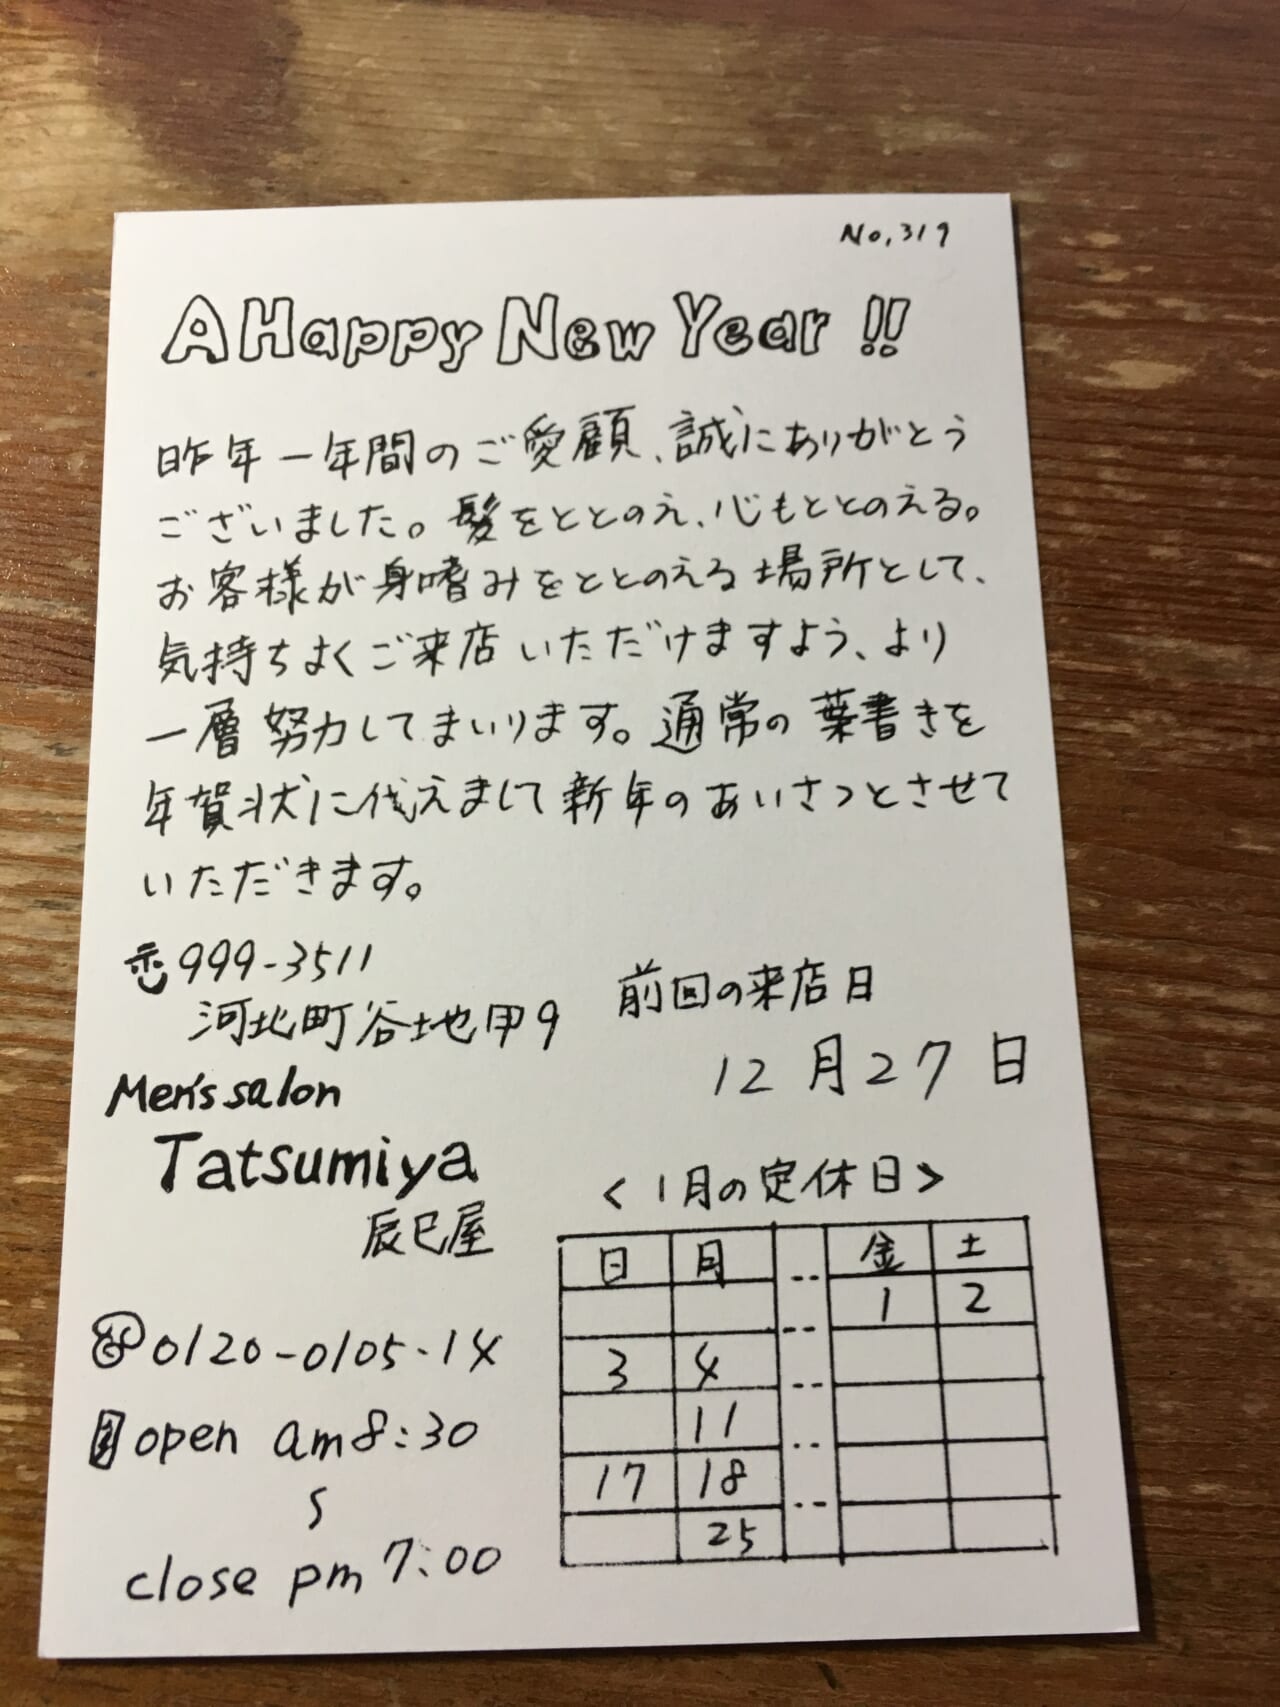 No,319
A Happy New Year !!
昨年一年間のご愛顧、誠にありがとう
ございました。髪をととのえ、心もととのえる。
お客様が身嗜みをととのえる場所として、
気持ちよくご来店いただけますよう、より
一層努力してまいります。通常の葉書きを
年賀状に代えまして新年のあいさつとさせて
いただきます。
999-3511
河北町谷地甲9
Men's salon
Tatsumiya
辰巳屋
0120-0105-14
open am8:30
〜
close pm 7:00
前回の来店日
12月27日
<1月の定休日>
日 月 -- 金 土
1 2
--
3 4
--
11
--
17 18
--
25